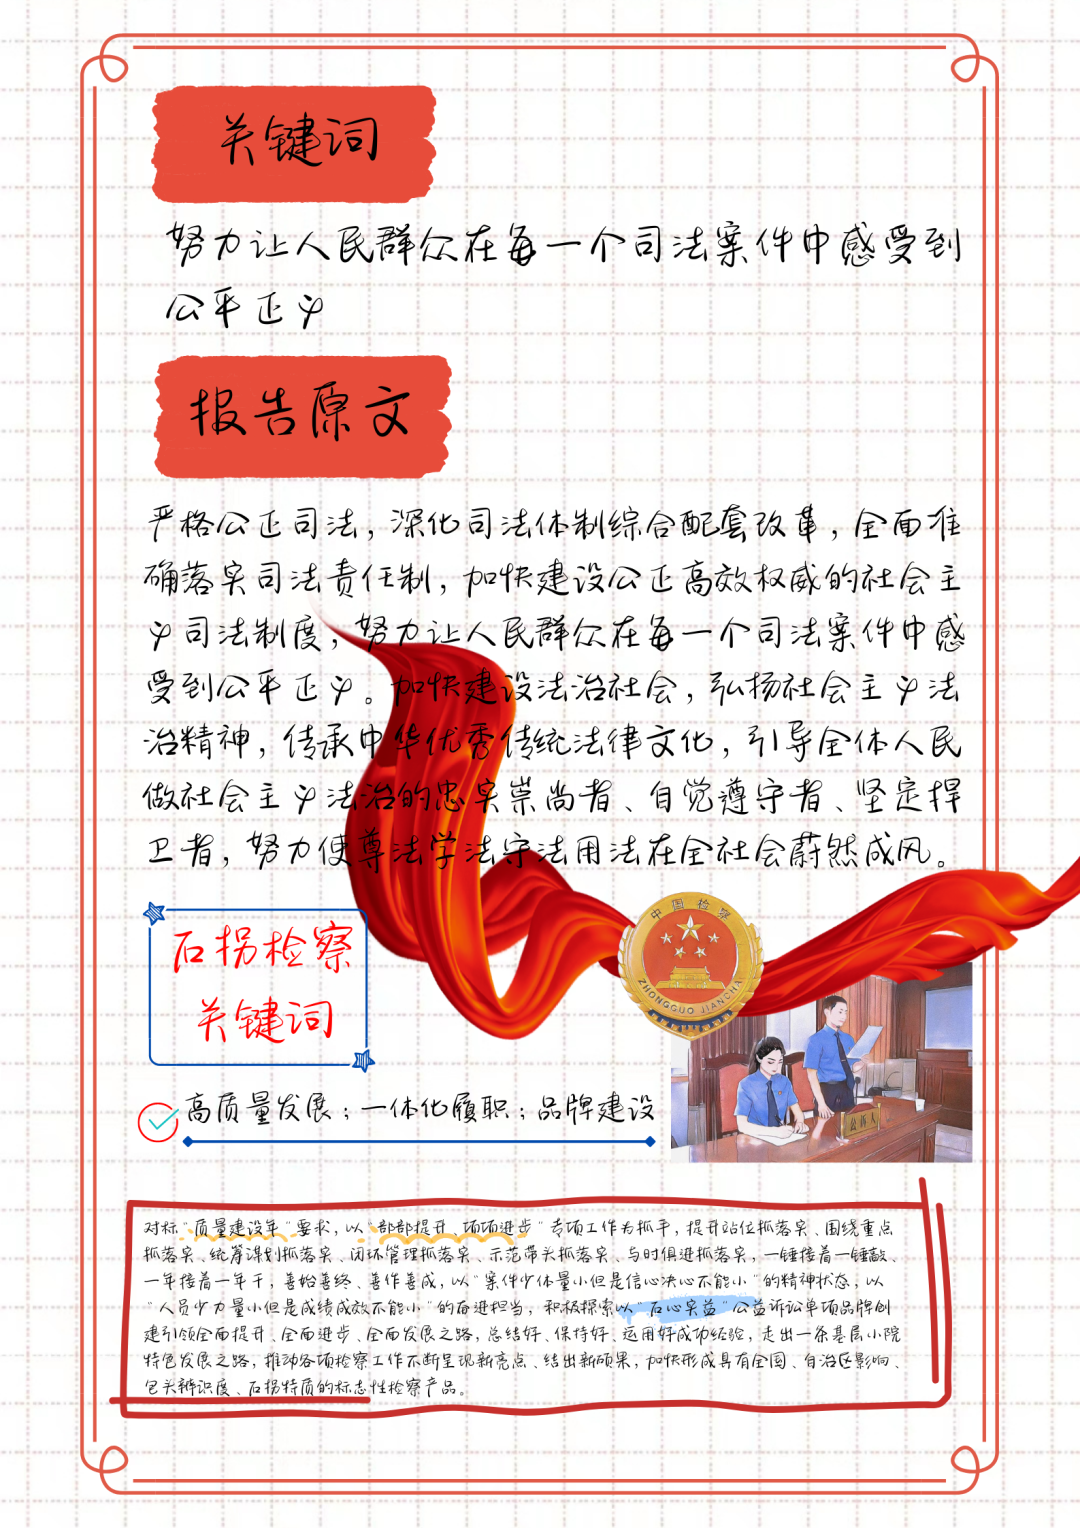 关键词
努力让人民群众在每一个司法案件中感受到
公平正义
报告原文
严格公正司法，深化司法体制综合配套改革，全面准
确落实司法责任制，加快建设公正高效权威的社会主
义司法制度，努力让人民群众在每一个司法案件中感
受到公平正义。加快建设法治社会，弘扬社会主义法
治精神，传承中华优秀传统法律文化，引导全体人民
做社会主义法治的忠实崇尚者、自觉遵守者、坚定捍
卫者，努力使尊法学法守法用法在全社会蔚然成风。
中国检察
ZHONGGUO JIANCHA
石拐检察
关键词
公诉人
高质量发展；一体化履职；品牌建设
对标“质量建设年”要求，以“部部提升、项项进步”专项工作为抓手，提升站位抓落实、围绕重点
抓落实、统筹谋划抓落实、闭环管理抓落实、示范带头抓落实、与时俱进抓落实，一锤接着一锤敲、
一年接着一年干，善始善终、善作善成，以“案件少体量小但是信心决心不能小”的精神状态，以
“人员少力量小但是成绩成效不能小”的奋进担当，积极探索以“石心实益”公益诉讼单项品牌创
建引领全面提升、全面进步、全面发展之路，总结好、保持好、运用好成功经验，走出一条基层小院
特色发展之路，推动各项检察工作不断呈现新亮点、结出新硕果，加快形成具有全国、自治区影响、
包头辨识度、石拐特质的标志性检察产品。